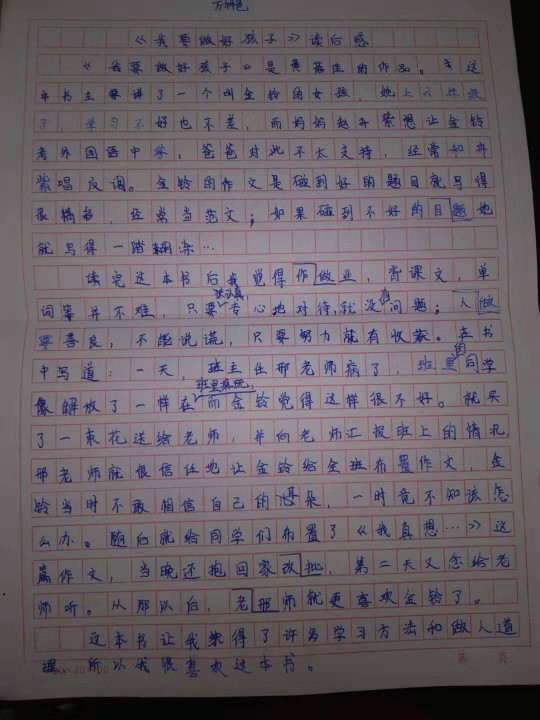 万科思
《我要做好孩子》读后感
《我要做好孩子》是黄蓓佳的作品。这
本书主要讲了一个叫金铃的女孩,她上六年级
了,学习不好也不差,而妈妈赵卉紫想让金铃
考外国语中学,爸爸对此不太支持,经常和卉
紫唱反调。金铃的作文是碰到好的题目就写得
很精彩,经常当范文;如果碰到不好的目题她
就写得一踏糊涂…
读完这本书后我觉得作做业,背课文,单
词等并不难,只要认真,专心地对待,就没有问题;人做
要善良,不能说谎,只要努力就有收获。在书
中写道:一天,班主任邢老师病了,班里的同学
像解放了一样在班里疯玩,而金铃觉得这样很不好。就买
了一束花送给老师,并向老师汇报班上的情况,
邢老师就很信任地让金铃给全班布置作文,金
铃当时不敢相信自己的耳朵,一时竟不知该怎
么办。随后就给同学们布置了《我真想…》这
篇作文,当晚还抱回家改批,第二天又念给老
师听。从那以后,老邢师就更喜欢金铃了。
这本书让我懂得了许多学习方法和做人道
理 所以我很喜欢这本书。
第 页